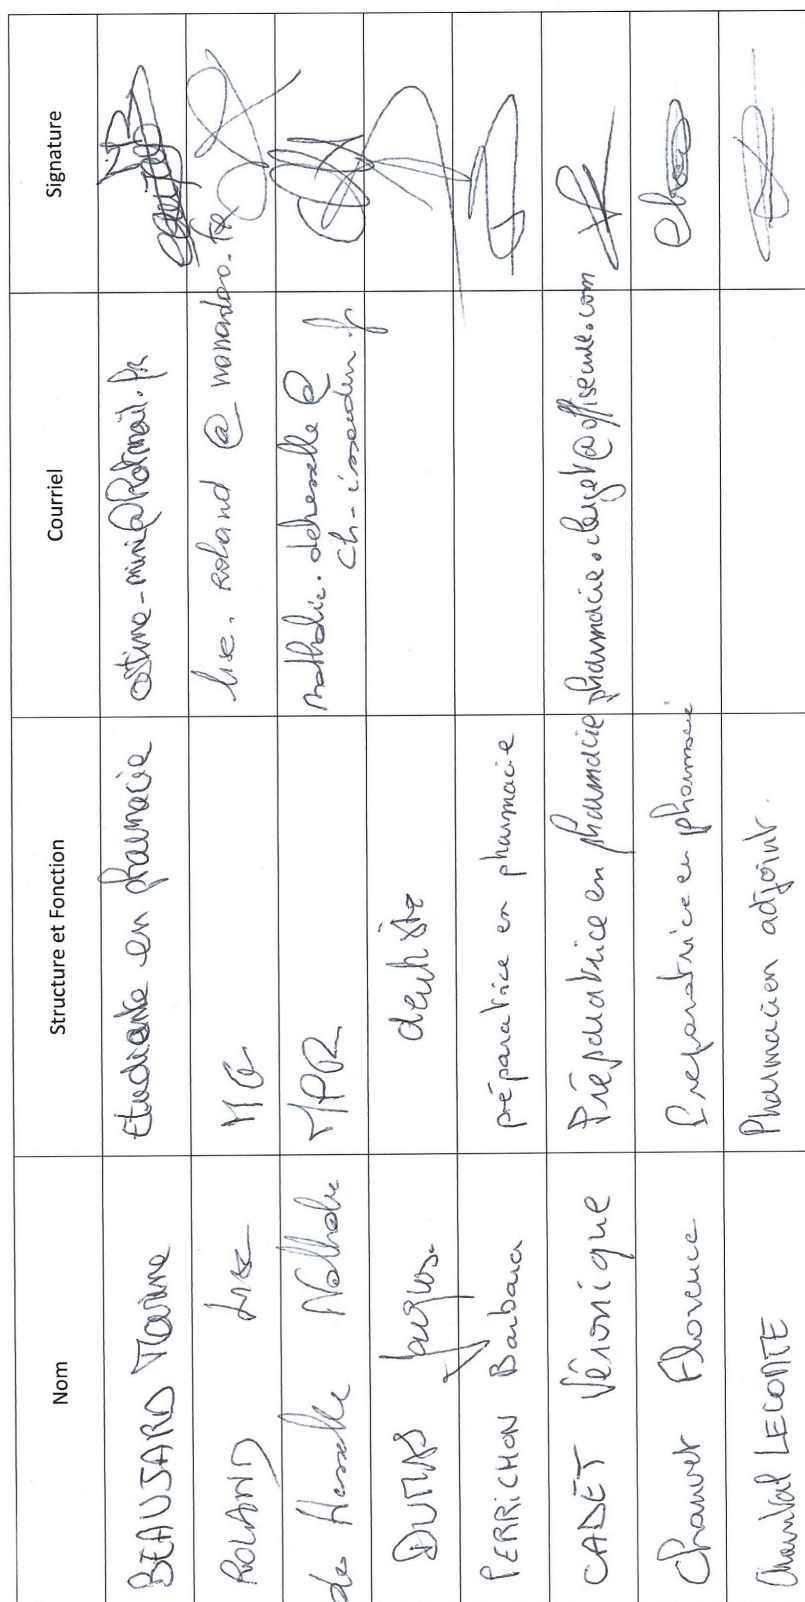 Nom Structure et Fonction Courriel Signature
BEAUJARD Marine Etudiante en pharmacie @hotmail.fr
ROLAND Lise MG lise.roland @ wanadoo.fr
de Hasselle Nathalie MPR nathalie.dehesselle @
ch-issoudun.fr
DUMAS Jacques dentiste
PERRICHON Barbara préparatrice en pharmacie
CADET Véronique Préparatrice en pharmacie pharmacie.clerjet@offisecure.com
Chauvet Florence Preparatrice en pharmacie
Chantal LECOMTE Pharmacien adjoint.